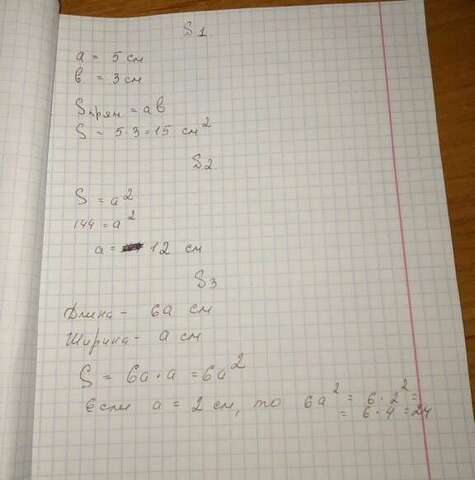 S1
a = 5 см
в = 3 см
Sпрям = ав
S = 5·3=15 см²
S2
S = a²
144 = a²
a = 12 см
S3
Длина - 6a см
Ширина - a см
S = 6a·a = 6a²
Если a = 2 см, то 6a² = 6·2² =
= 6·4 = 24